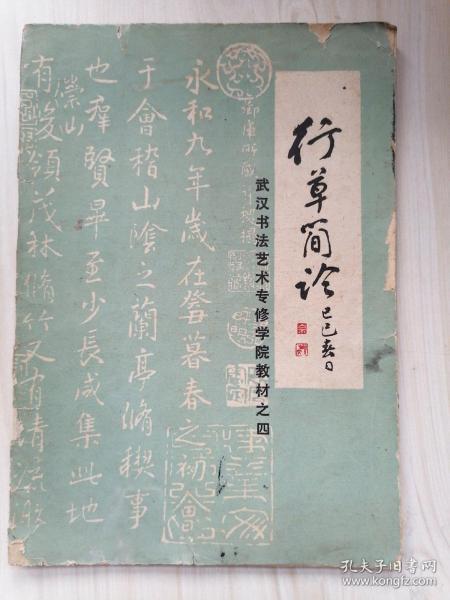 行草简论
己巳春日
武汉书法艺术专修学院教材之四
永和九年歲在癸暮春之初會
于會稽山陰之蘭亭脩稧事
也羣賢畢至少長咸集此地
崇山
有峻領茂林脩竹又有清流激
孔夫子旧书网
www.kongfz.com